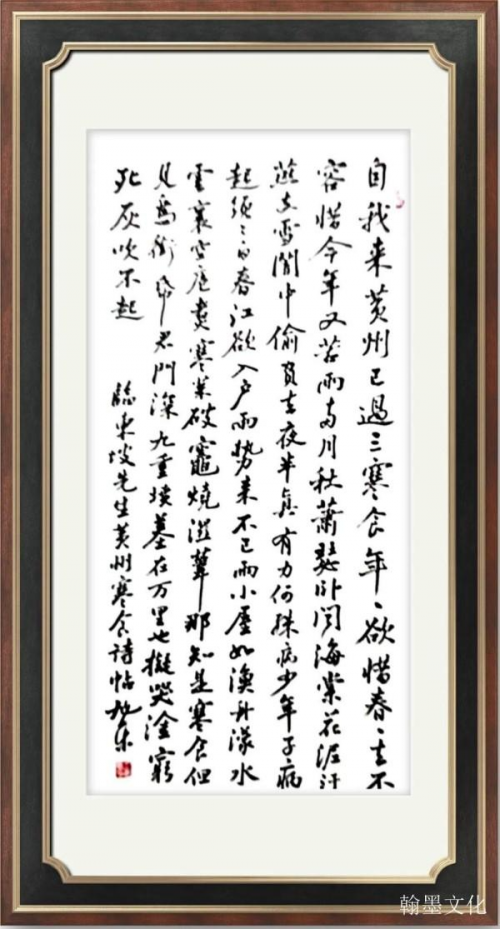 自我来黄州已過三寒食年、欲惜春、去不
容惜今年又苦雨两月秋蕭瑟卧闻海棠花泥汙
燕支雪闇中偷負去夜半真有力何殊病少年子病
起須已白春江欲入户雨势来不已雨小屋如漁舟濛水
雲裏空庖煮寒菜破竈燒溼葦那知是寒食但
見烏銜帋君門深九重墳墓在万里也擬哭塗窮
死灰吹不起
臨東坡先生黄州寒食詩帖
翰墨文化